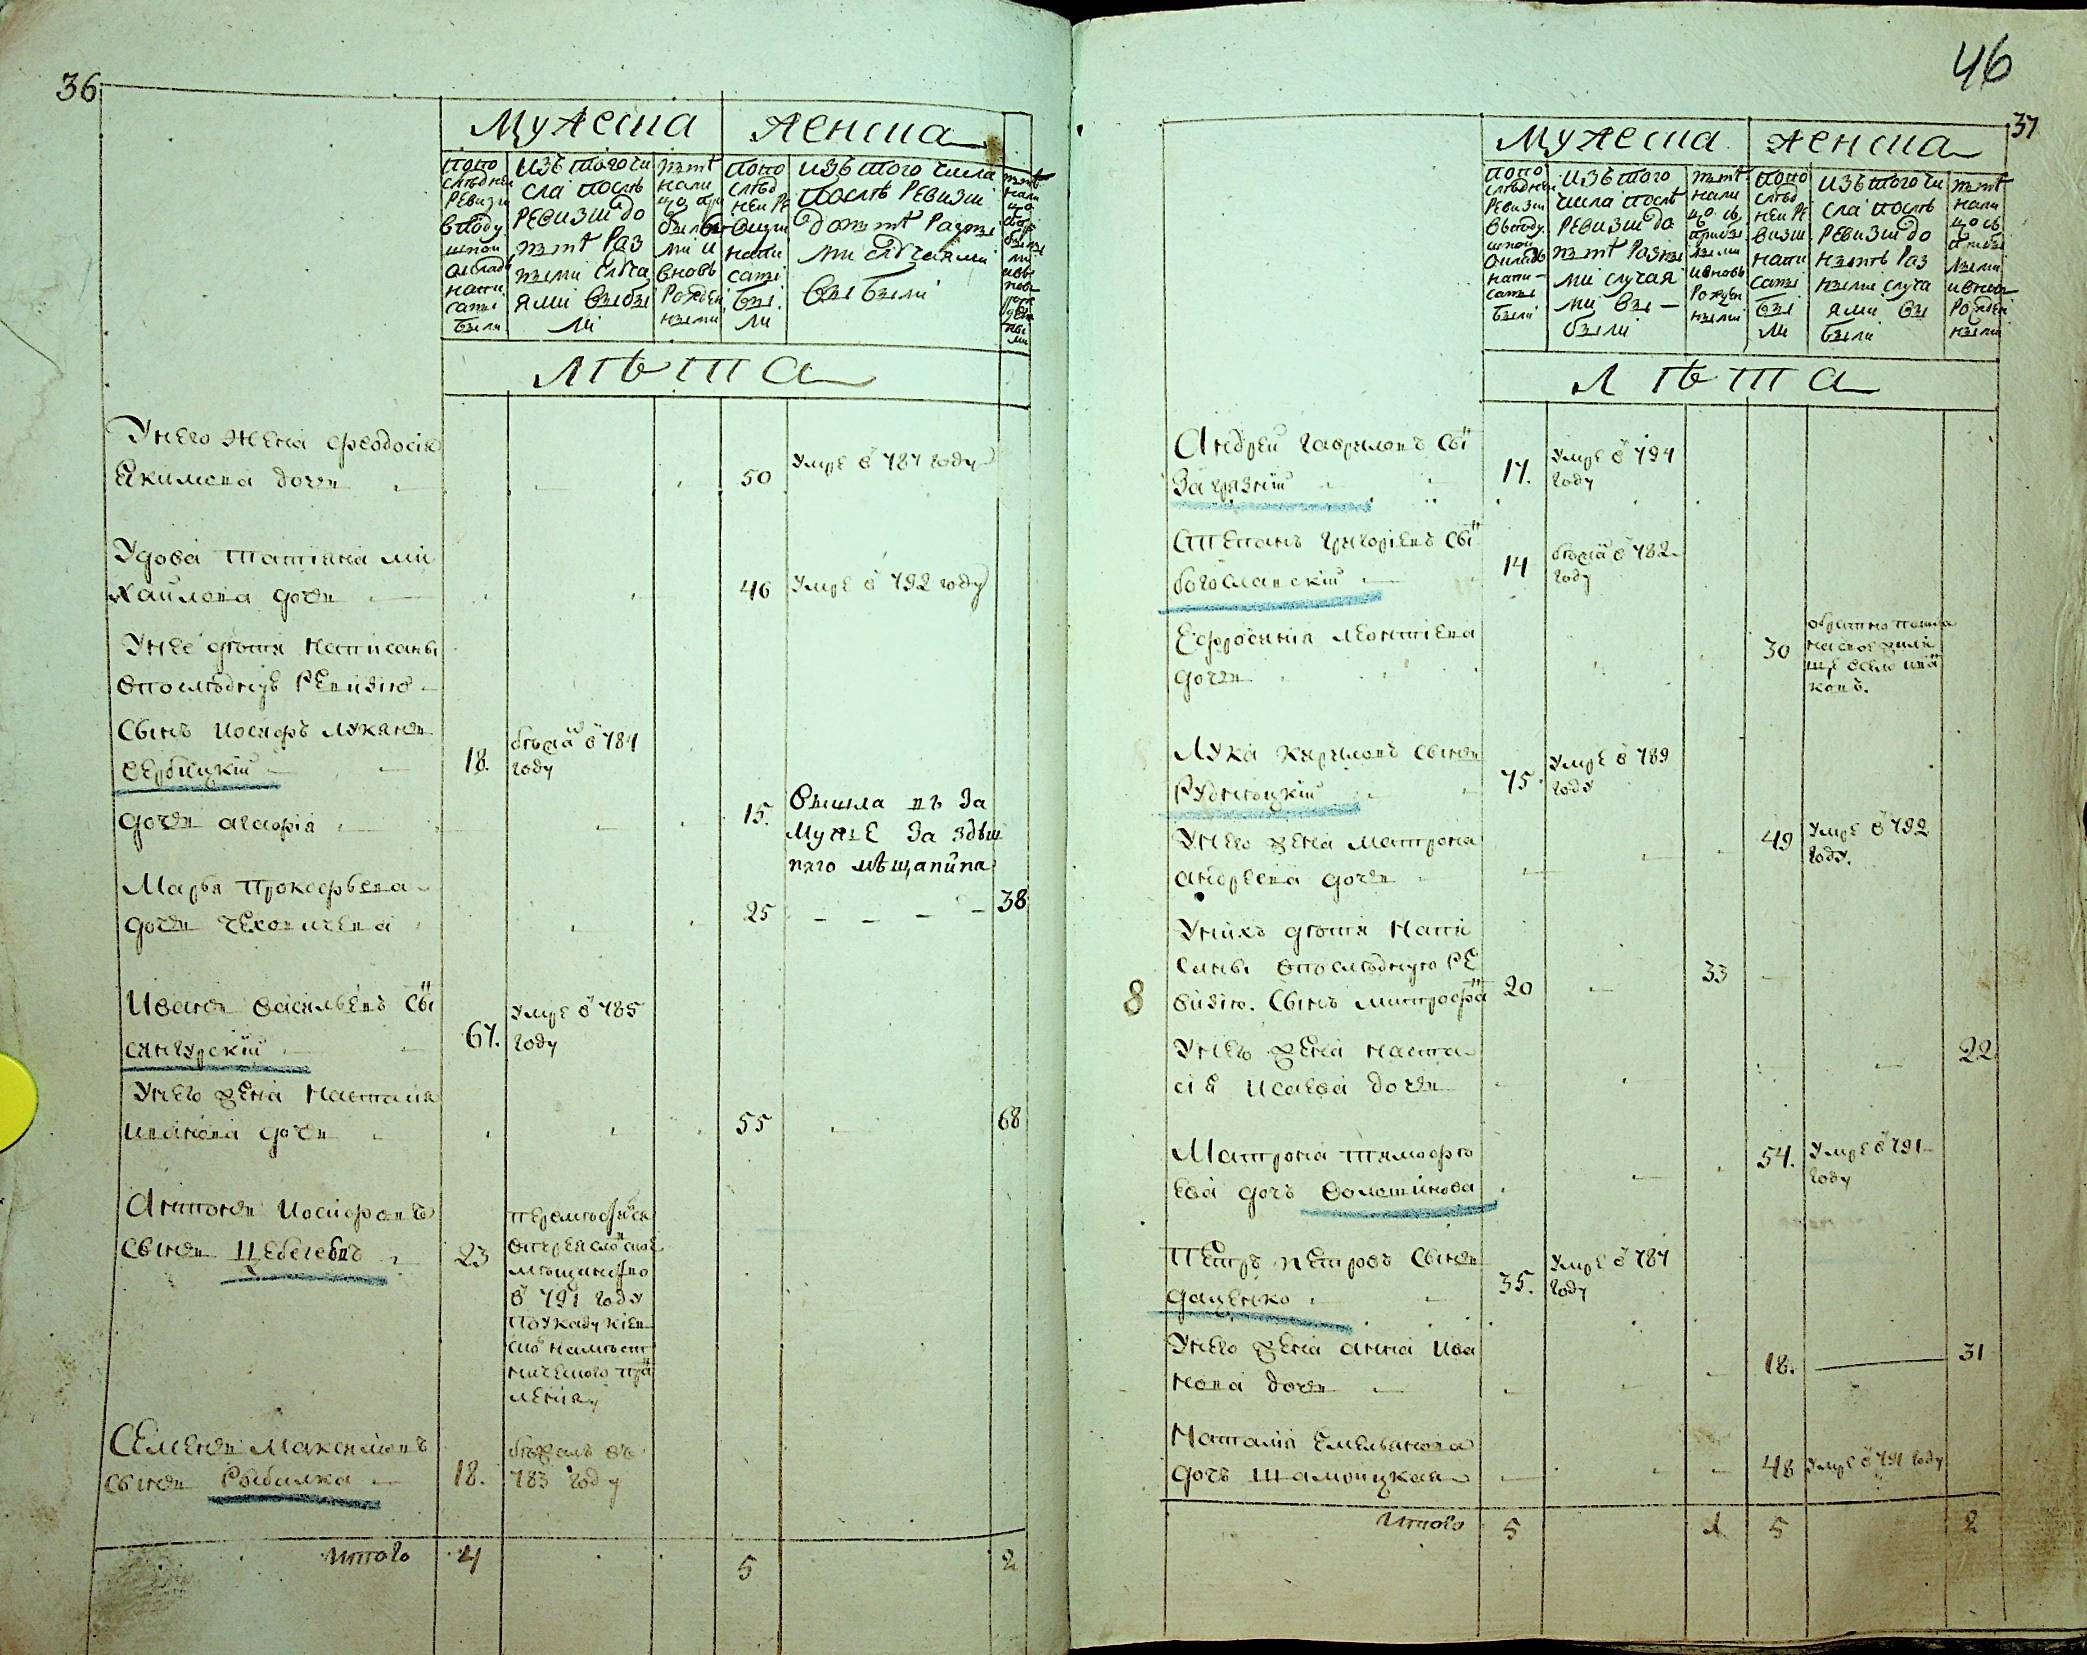 36
Мужеска
Женска
попо
следней
ревизи
в поду
шной
окладъ
напи
саны
были
изъ того чи
сла после
ревизии до
ныне раз
ными случа
ями выбы
ли
ныне
нали
цо при
былы
ми и
вновь
рожден
ными
попо
след
ней ре
визии
напи
саны
бы
ли
изъ того числа
после ревизии
до ныне разны
ми случаями
выбыли
лѣта
У него жена Феодосия
Екимова дочь
50
умре в 787 году
Удова Татіяна Ми
хайлова дочь
46
умре в 792 году
У нее дѣти написаны
в последнюю ревизию
Сынъ Иосифъ Луканъ
Вербицкій
18.
бежа в 784
году
дочь Агафія
15.
Вышла въ за
мужже за здѣш
няго мѣщанина
Марья Прокофьева
дочь Чеховичева
25
38
Иванъ Васильевъ сы
Сангурскій
67.
умре в 785
году
У него жена Наталия
Иванова дочь
55
68
Антонъ Иосифовъ
сынъ Цебелевъ
23
в 791 году
по указу Кіев
Семенъ Максимовъ
сынъ Рыбалка
18.
бежалъ въ
783 году
итого
4
5
2
46
37
Мужеска
Женска
попо
следней
ревизии
в поду
шной
окладъ
напи
саны
были
изъ того
числа после
ревизии до
ныне разны
ми случая
ми вы
были
ныне
нали
цо съ
прибы
лыми
и вновь
рожден
ными
попо
след
ней ре
визии
напи
саны
бы
ли
изъ того чи
сла после
ревизии до
ныне раз
ными случа
ями вы
были
ныне
нали
цо съ
прибы
лыми
и вновь
рожден
ными
лѣта
Андрей Гавриловъ сы
Загрязкій
17.
умре в 794
году
Степанъ Григорьевъ сы
Богославскій
14
бежа в 782
году
Ефросиния Леонтиева
дочь
30
обратно пошла
Лука Кириловъ сынъ
Рудницкій
75.
умре в 789
году
У него жена Матрона
Андреева дочь
49
умре в 792
году.
У нихъ дѣти напи
саны в последнюю ре
8
визию. Сынъ Митрофа
20
33
У него жена Наста
сия Исаева дочь
22
Матрона Тимофѣ
ева дочь Волошинова
54.
умре в 791
году
Петръ Петровъ сынъ
Даценко
35.
умре в 787
году
У него жена Анна Ива
нова дочь
18.
31
Наталия Емельянова
дочь Шамоицкая
48
умре в 791 году
итого
5
1
5
2